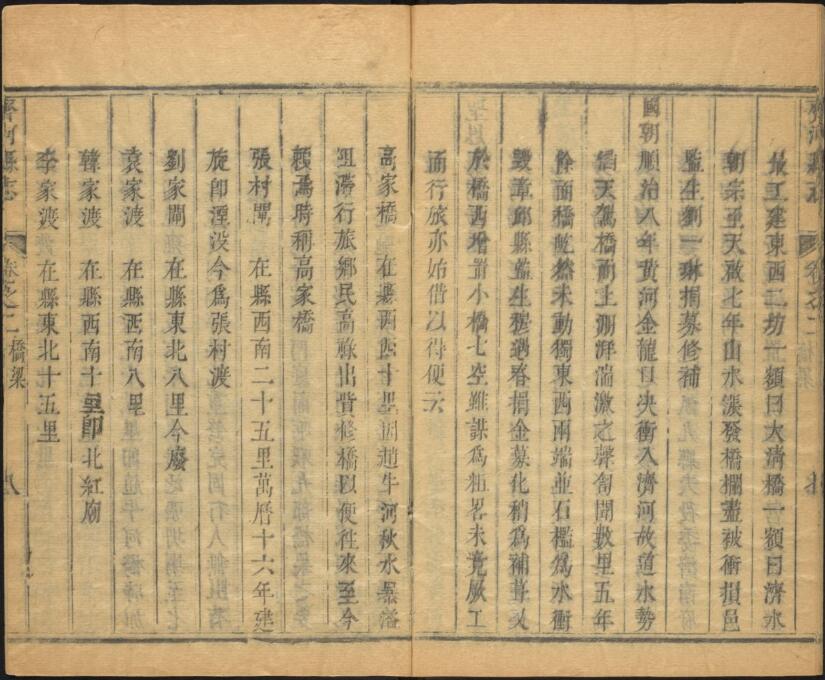 最工建東西二坊一額曰大清橋一額曰濟水
朝宗至天啟七年山水漲發橋欄盡被衝損邑
監生劉一琳捐募修補
國朝順治八年黃河金龍口決衝入濟河故道水勢
滔天駕橋而上澎湃湍激之聲訇聞數里五年
餘而橋屹然未動獨東西兩端並石檻為水衝
毀章邱縣監生穆遇春捐金募化稍為補葺又
於橋西增置小橋七空雖謀為粗畧未竟厥工
而行旅亦始借以得便云
高家橋 在縣西四十里因趙牛河秋水暴漲
阻滯行旅鄉民高 出貲修橋以便往來至今
賴焉時稱高家橋
張村閘 在縣西南二十五里萬曆十六年建
旋即湮沒今為張村渡
劉家閘 在縣東北八里今廢
袁家渡 在縣西南八里
韓家渡 在縣西南十里即北紅廟
李家渡 在縣東北十五里
齊河縣志 卷之二 橋梁 八